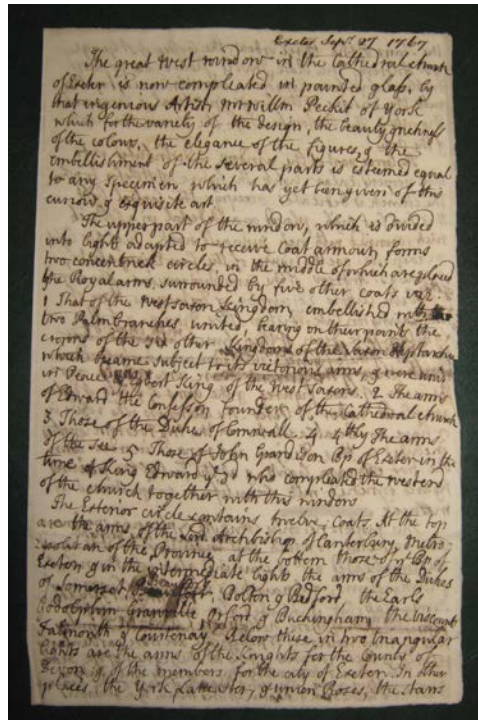 Exeter Sepr. 27 1767
The great West window in the Cathedral church
of Exeter is now compleated in painted glass, by
that ingenious Artist, Mr Willm Peckit of York
which for the variety of the design, the beauty & richness
of the colours, the elegance of the figures, & the
embellishment of the several parts is esteemed equal
to any specimen which has yet been given of this
curious & exquisite art
The upper part of the window, which is divided
into lights adapted to receive coat armour, forms
two concentrick circles in the middle of which are placed
the Royal arms, surrounded by five other coats viz.
1 That of the West saxon kingdom, embellished with
two Palm branches united, bearing on their points the
crowns of the six other Kingdoms of the Saxon Heptarchy
which became subject to its victorious arms, & were
in Peace Egbert King of the West Saxons. 2. The arms
of Edward the Confessor founder of the Cathedral church
3 Those of the Duke of Cornwall. 4 The arms
of the See. 5 Those of John Grandison Bp of Exeter in the
time of King Edward ye 3d who compleated the west end
of the church together with this window
The Exterior circle contains twelve Coats. At the top
are the arms of the Archbishop of Canterbury, Metro-
politan of the Province, at the bottom those of ye Bp of
Exeter, & in the intermediate lights the arms of the Dukes
of Somerset Bolton & Bedford the Earls
Orford & Buckingham, the Viscount
Falmouth & Courtenay. Below these in two triangular
lights are the arms of the Knights for the County of
Devon, & of the members for the city of Exeter. In other
places, the York, Lancaster, & union Roses, the stars